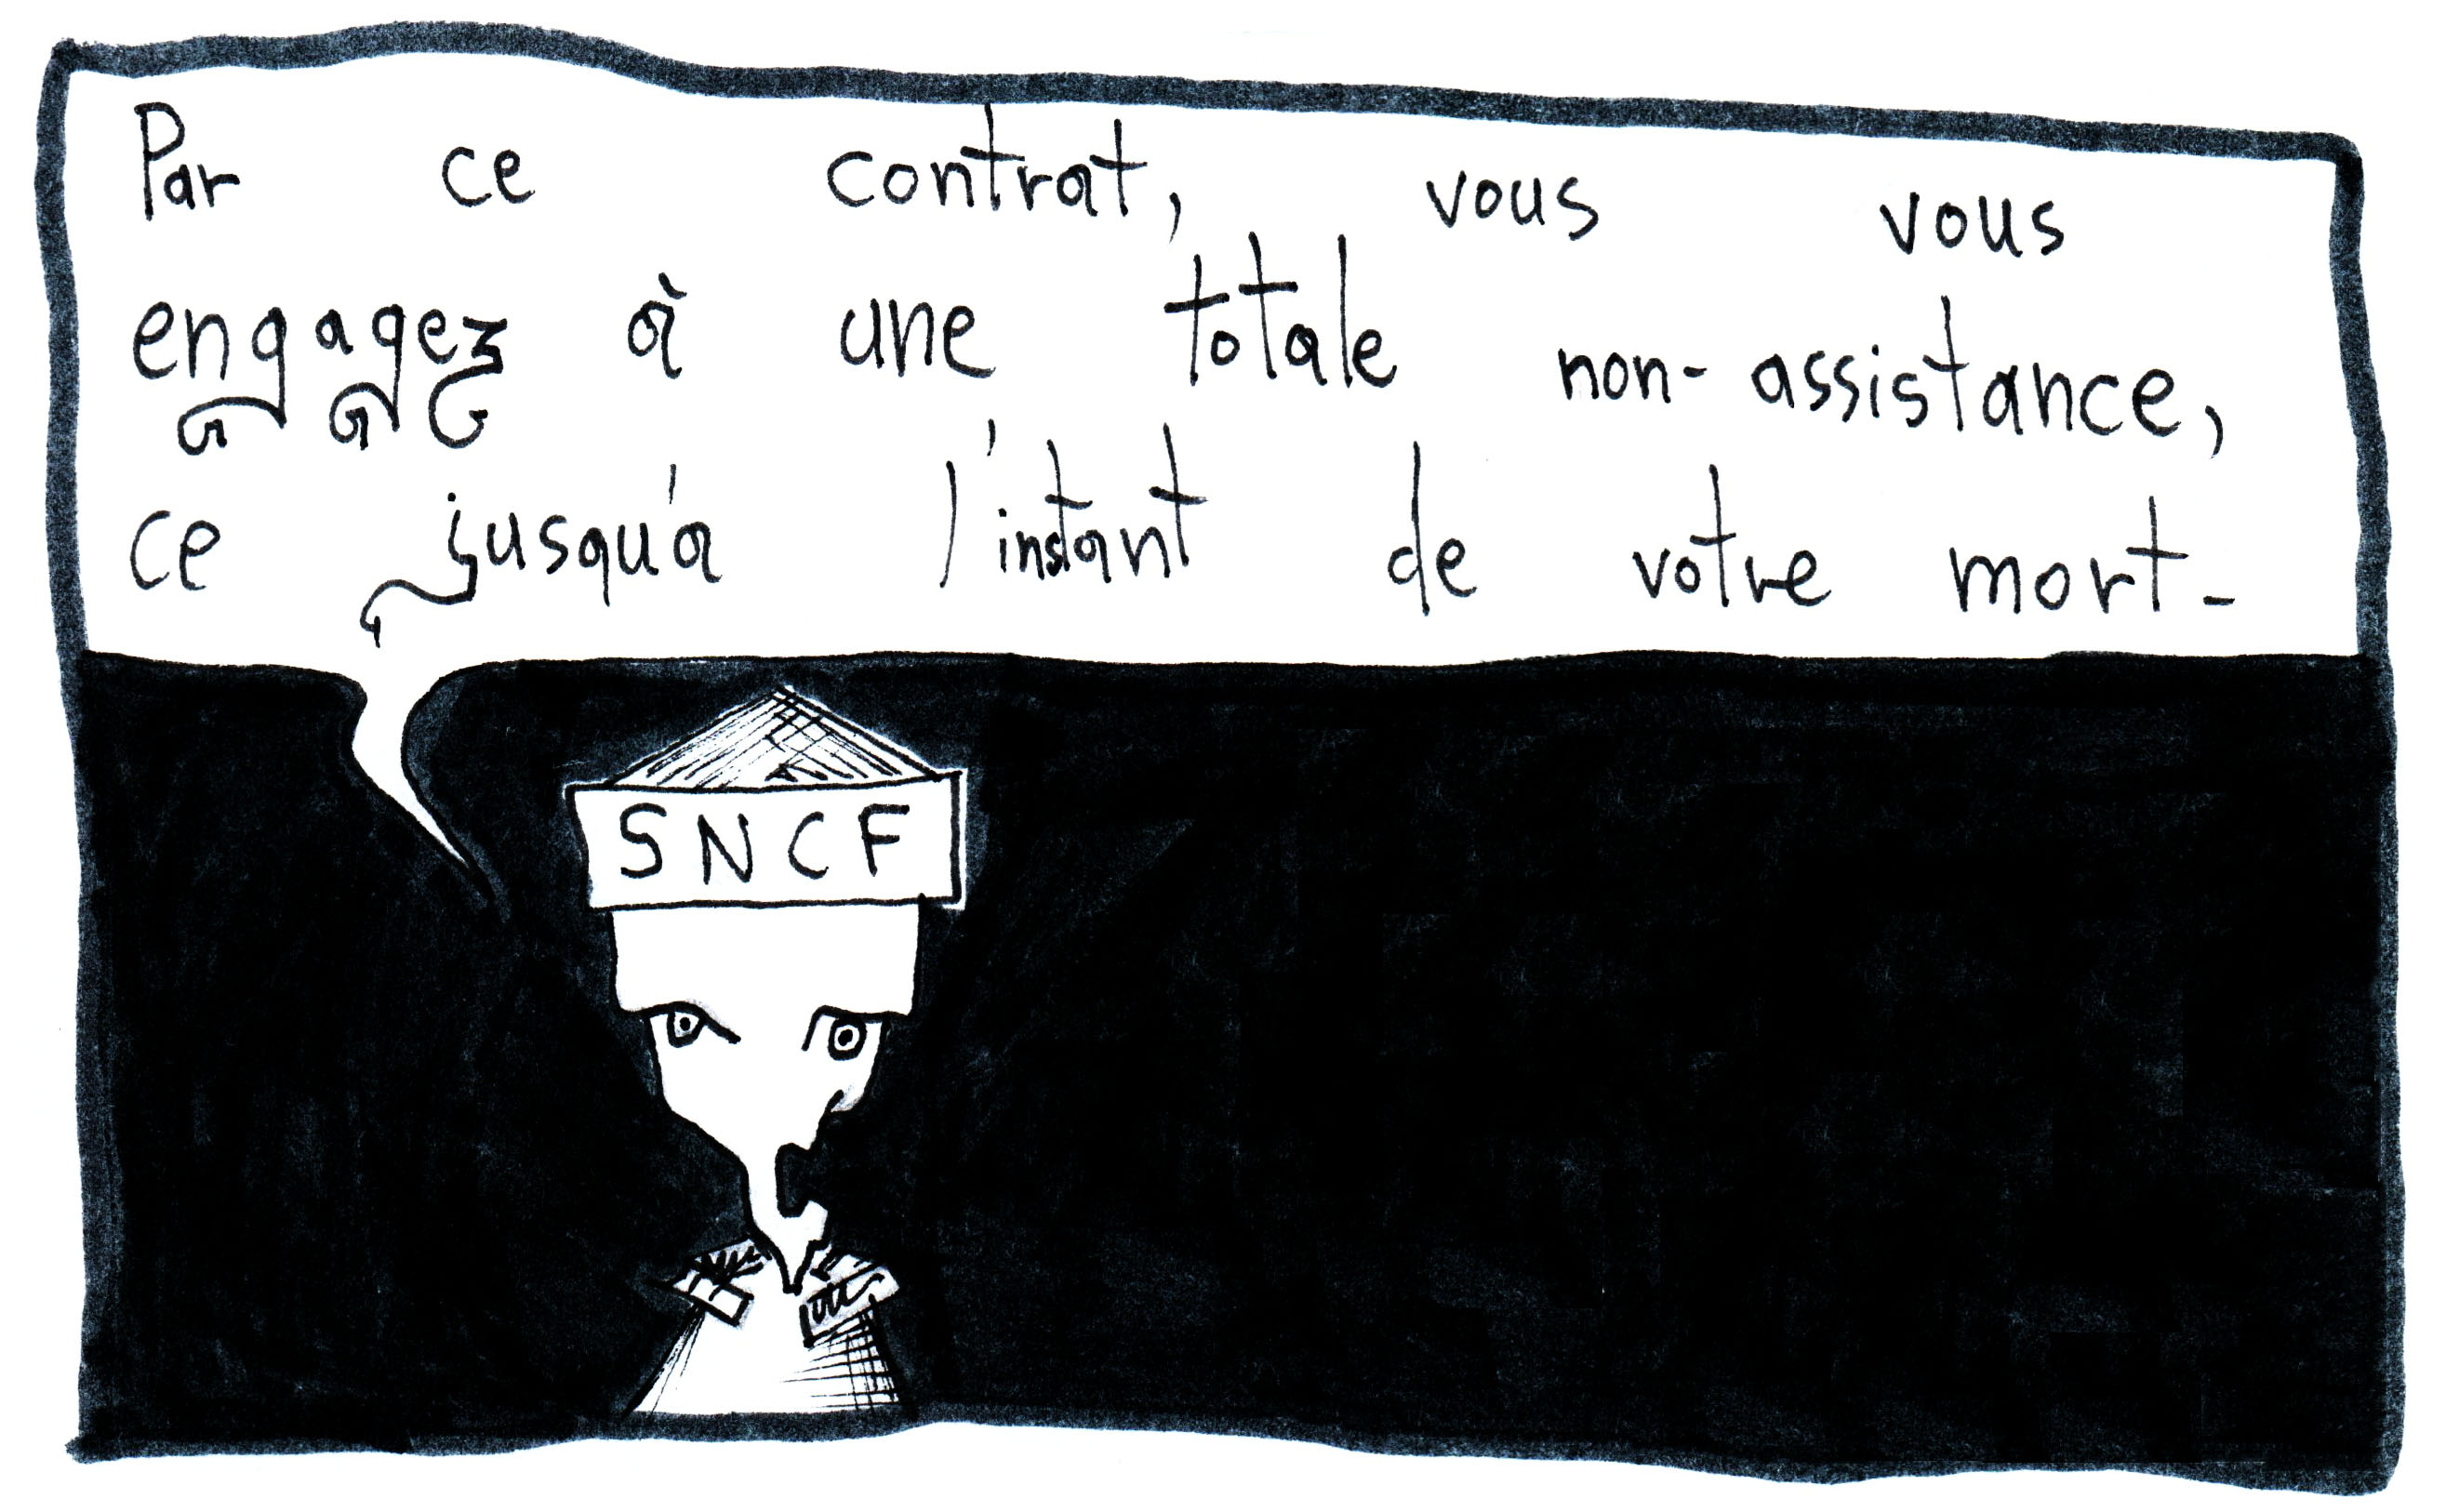 Par ce contrat, vous vous
engagez à une totale non-assistance,
ce jusqu'à l'instant de votre mort-
SNCF